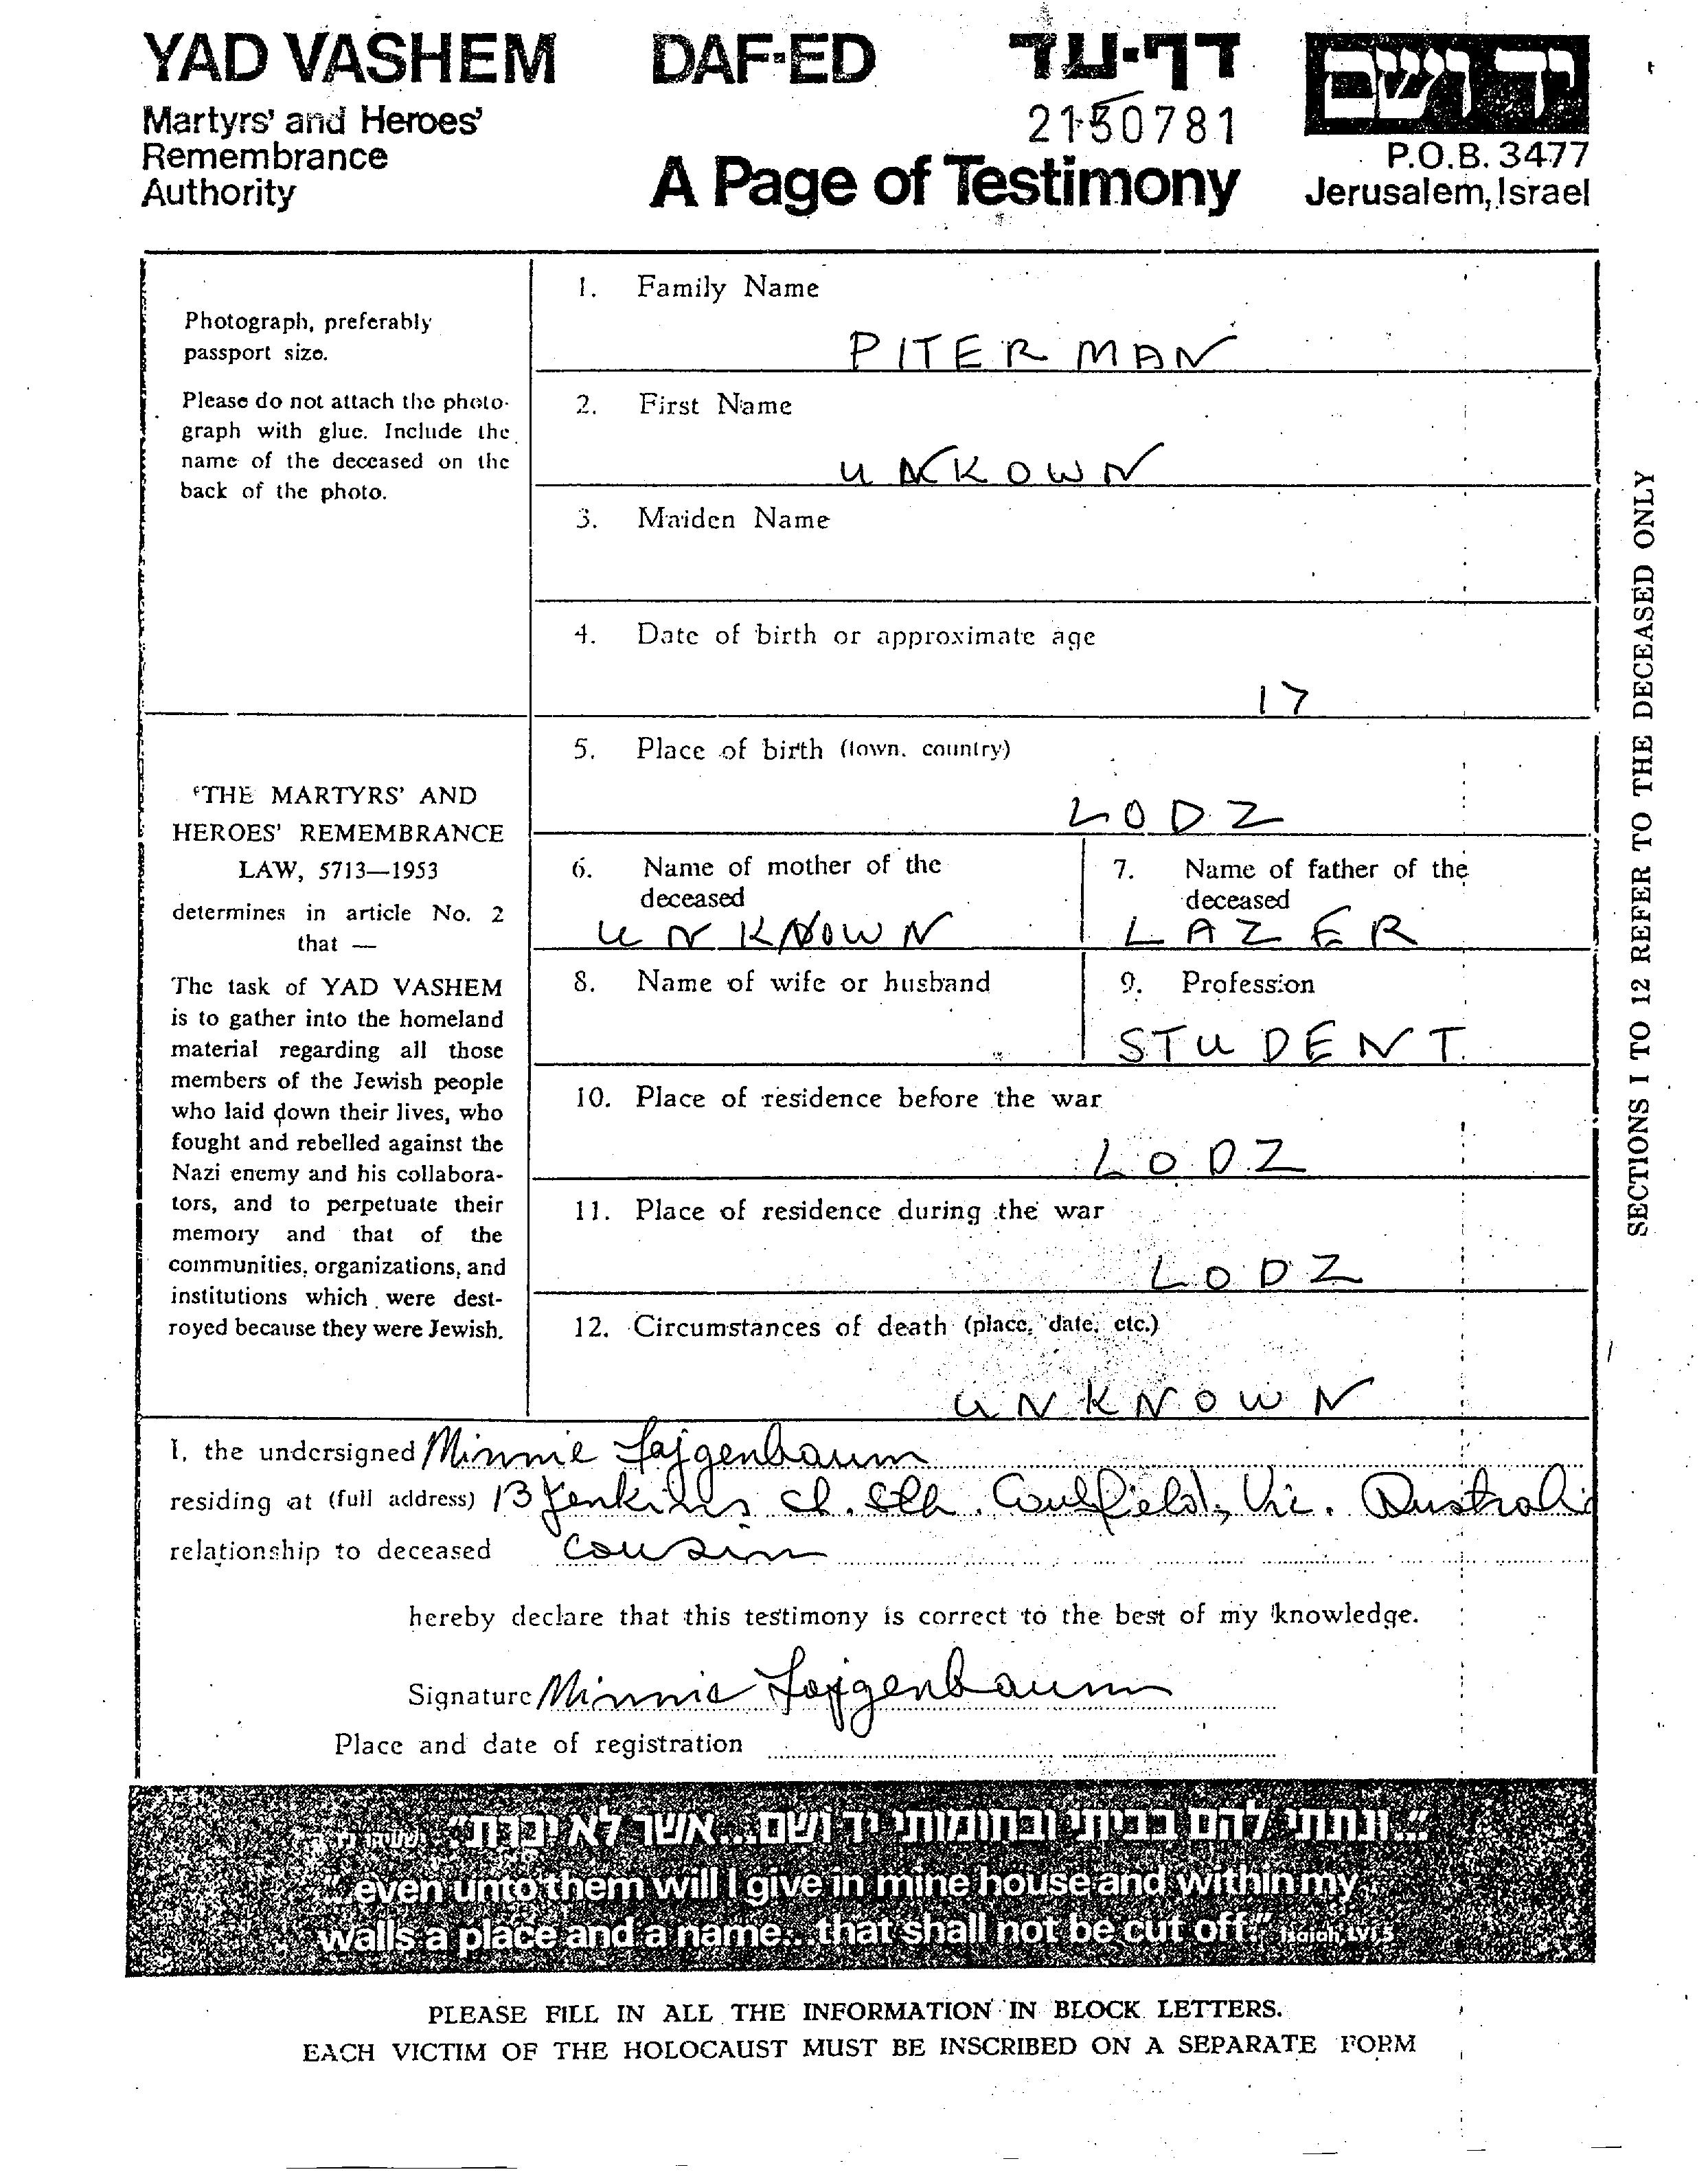 YAD VASHEM DAF-ED דף-עד ידושם
Martyrs' and Heroes' 2150781
Remembrance P.O.B. 3477
Authority A Page of Testimony Jerusalem, Israel
Photograph, preferably
passport size.
Please do not attach the photo-
graph with glue. Include the
name of the deceased on the
back of the photo.
1. Family Name
PITERMAN
2. First Name
UNKOWN
3. Maiden Name
4. Date of birth or approximate age
17
5. Place of birth (town, country)
LODZ
6. Name of mother of the
deceased
UNKNOWN
7. Name of father of the
deceased
LAZER
8. Name of wife or husband
9. Profession
STUDENT
10. Place of residence before the war
LODZ
11. Place of residence during the war
LODZ
12. Circumstances of death (place, date, etc.)
UNKNOWN
'THE MARTYRS' AND
HEROES' REMEMBRANCE
LAW, 5713—1953
determines in article No. 2
that —
The task of YAD VASHEM
is to gather into the homeland
material regarding all those
members of the Jewish people
who laid down their lives, who
fought and rebelled against the
Nazi enemy and his collabora-
tors, and to perpetuate their
memory and that of the
communities, organizations, and
institutions which were dest-
royed because they were Jewish.
SECTIONS 1 TO 12 REFER TO THE DECEASED ONLY
I, the undersigned Minnie Fajgenbaum
residing at (full address) 13 Jenkins St. Sth. Caulfield, Vic. Australia
relationship to deceased cousin
hereby declare that this testimony is correct to the best of my knowledge.
Signature Minnie Fajgenbaum
Place and date of registration
"...ונתתי להם בביתי ובחומותי יד ושם...אשר לא יכרת".
"...even unto them will I give in mine house and within my
walls a place and a name...that shall not be cut off." Isaiah, LVI,5
PLEASE FILL IN ALL THE INFORMATION IN BLOCK LETTERS.
EACH VICTIM OF THE HOLOCAUST MUST BE INSCRIBED ON A SEPARATE FORM